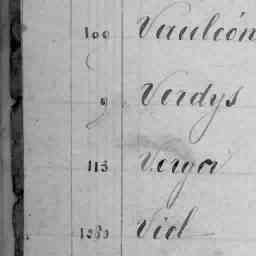 100 Vauleón
9 Verdys
113 Verger
1283 Viel